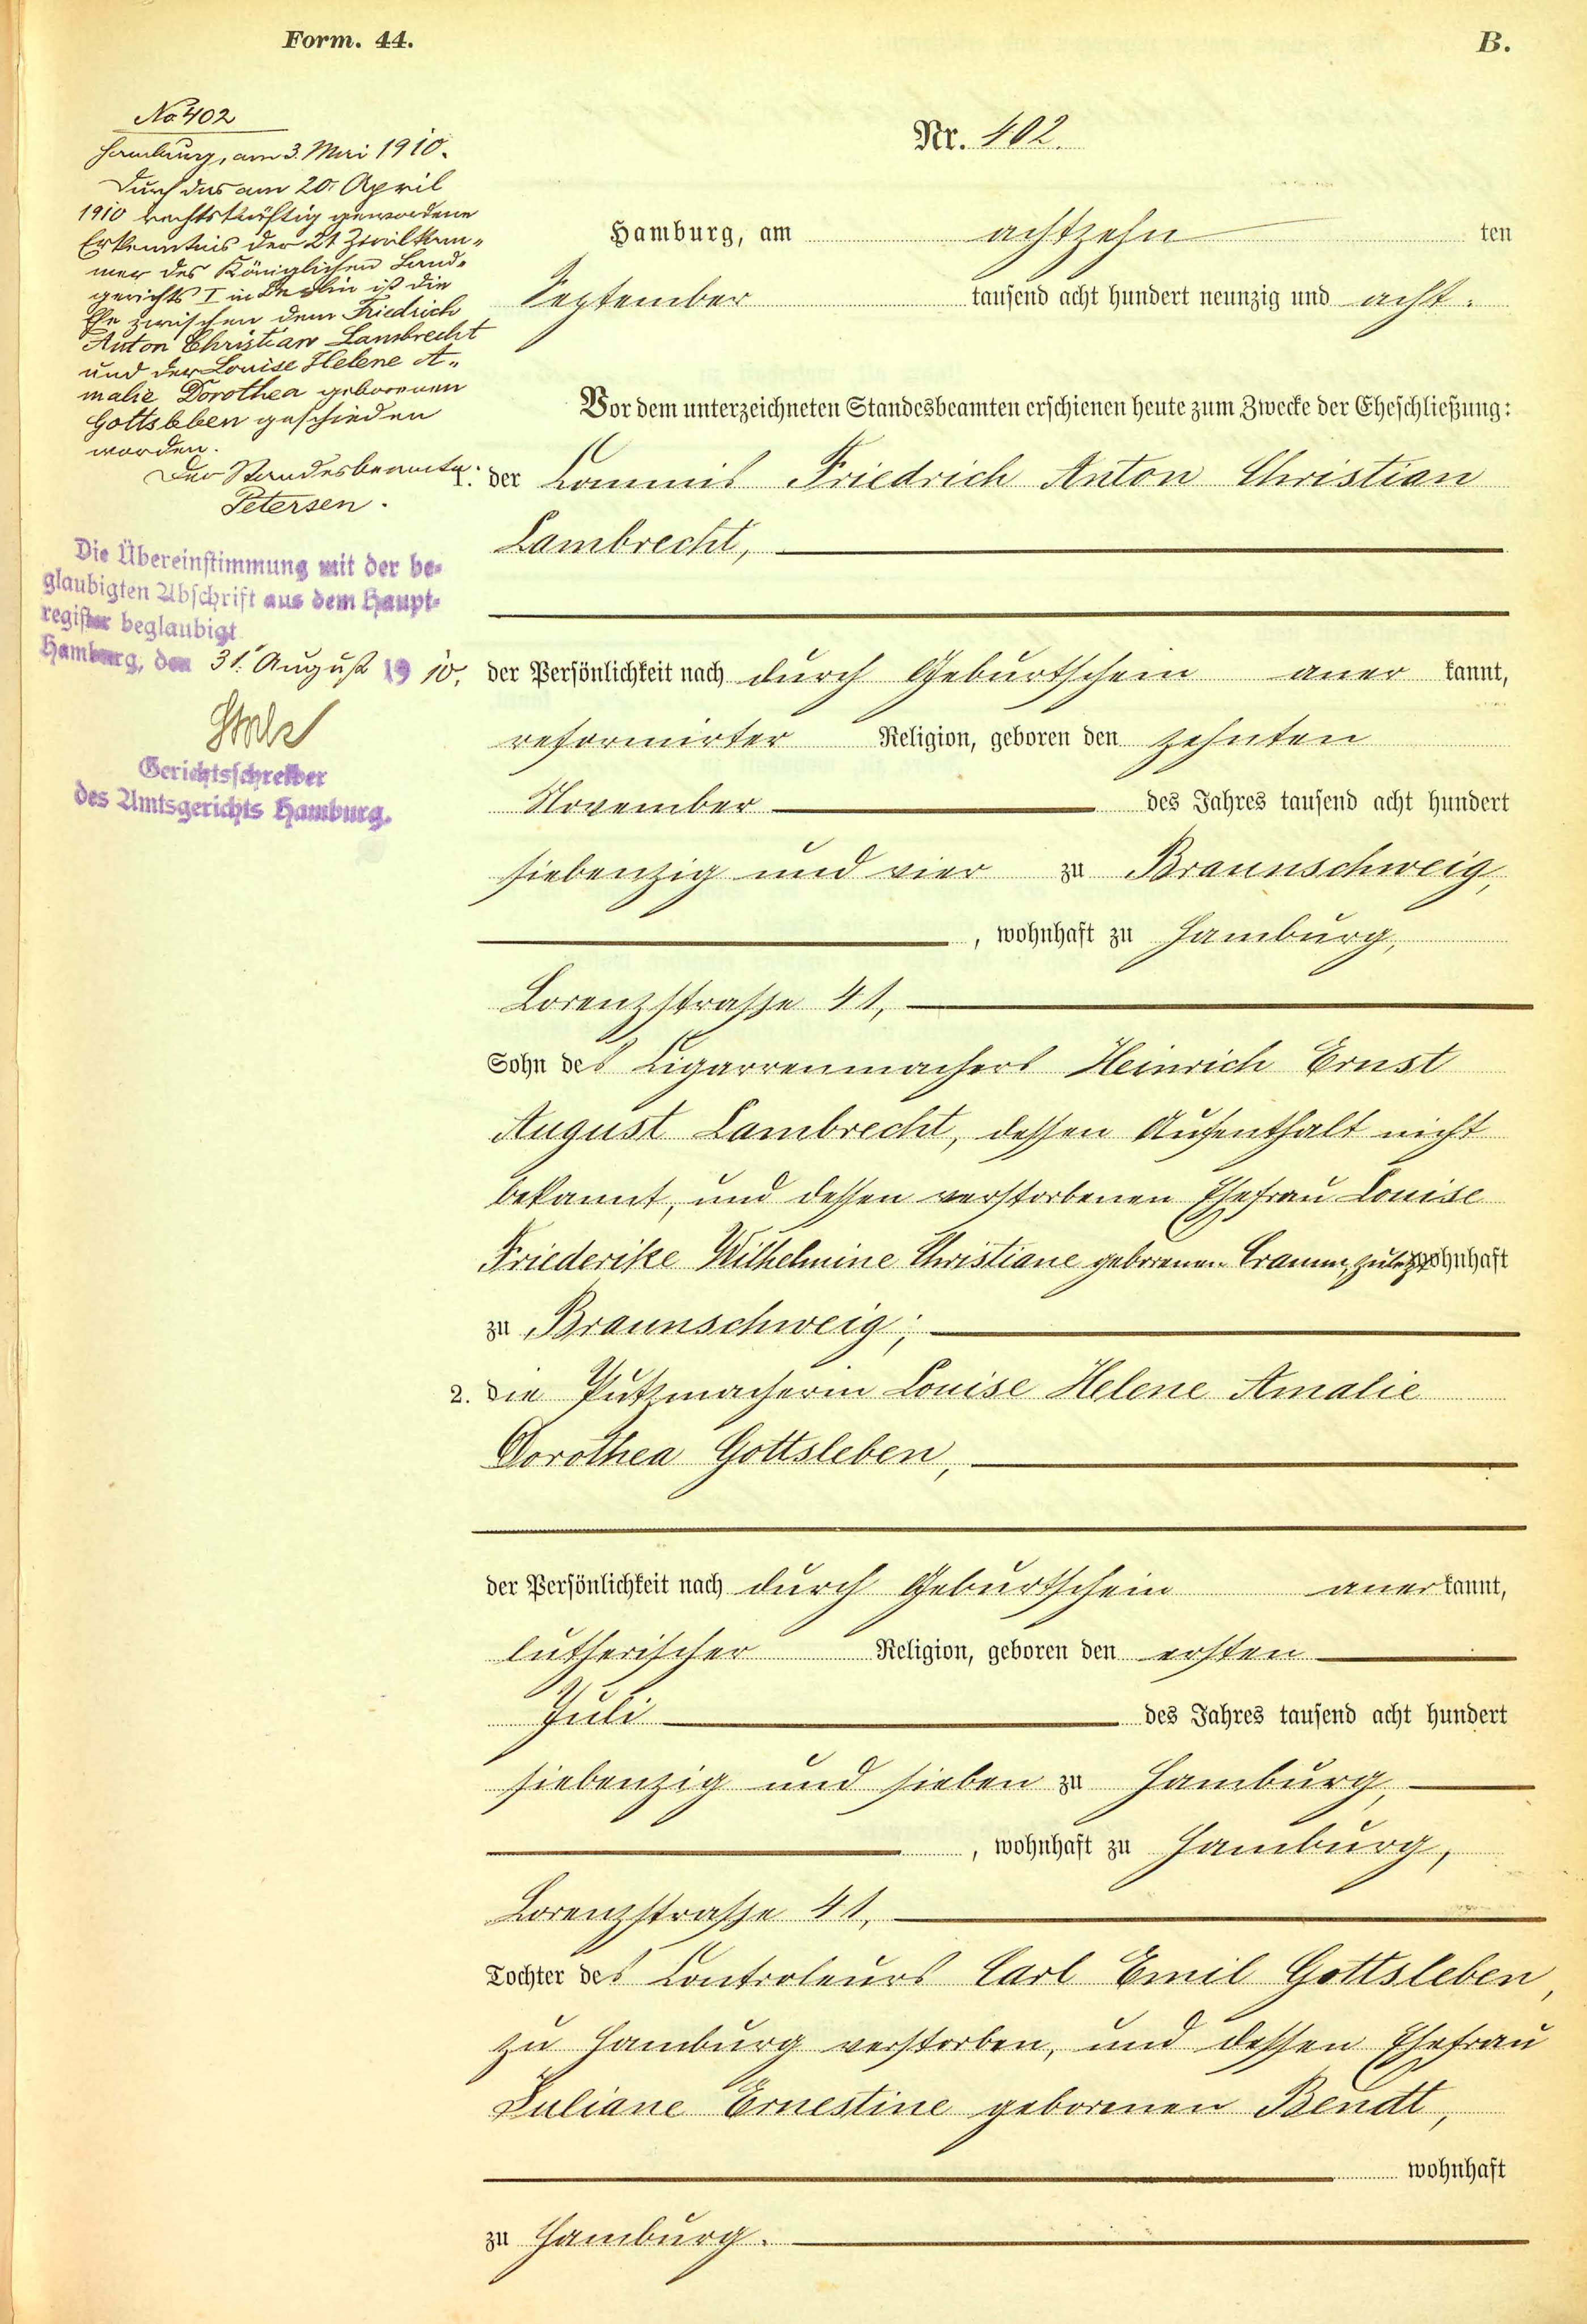 Form. 44.
B.
No 402
Hamburg, am 3. Mai 1910.
Durch das am 20. April
1910 rechtskräftig gewordene
Erkenntnis der 21 Zivilkam-
mer des Königlichen Land-
gerichts I in Berlin ist die
Ehe zwischen dem Friedrich
Anton Christian Lambrecht
und der Louise Helene A-
malie Dorothea geborenen
Gottsleben geschieden
worden.
Der Standesbeamte.
Petersen.
Die Übereinstimmung mit der be-
glaubigten Abschrift aus dem Haupt-
register beglaubigt
Hamburg, den 31. August 1910.
Gerichtsschreiber
des Amtsgerichts Hamburg.
Nr. 402.
Hamburg, am achtzehn ten
September tausend acht hundert neunzig und acht.
Vor dem unterzeichneten Standesbeamten erschienen heute zum Zwecke der Eheschließung:
1. der Commis Friedrich Anton Christian
Lambrecht,
der Persönlichkeit nach durch Geburtschein aner kannt,
reformirter Religion, geboren den zehnten
November des Jahres tausend acht hundert
siebenzig und vier zu Braunschweig,
, wohnhaft zu Hamburg,
Lorenzstraße 41,
Sohn des Cigarrenmachers Heinrich Ernst
August Lambrecht, dessen Aufenthalt nicht
bekannt, und dessen verstorbenen Ehefrau Louise
Friederike Wilhelmine Christiane geborenen Cramm, zuletzt wohnhaft
zu Braunschweig;
2. die Putzmacherin Louise Helene Amalie
Dorothea Gottsleben,
der Persönlichkeit nach durch Geburtschein aner kannt,
lutherischer Religion, geboren den ersten
Juli des Jahres tausend acht hundert
siebenzig und sieben zu Hamburg,
, wohnhaft zu Hamburg,
Lorenzstraße 41,
Tochter des Controleurs Carl Emil Gottsleben,
zu Hamburg verstorben, und dessen Ehefrau
Juliane Ernestine geborenen Bendt,
wohnhaft
zu Hamburg.